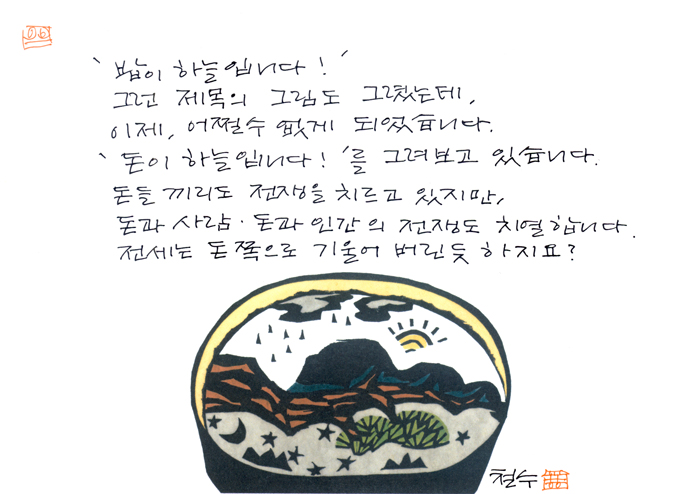 '밥이 하늘입니다!'
그런 제목의 그림도 그렸는데,
이제, 어쩔수 없게 되었습니다.
'돈이 하늘입니다!'를 그려보고 있습니다.
돈들 끼리도 전쟁을 치르고 있지만,
돈과 사람·돈과 인간의 전쟁도 치열합니다.
전세는 돈쪽으로 기울어 버린듯 하지요?
철수